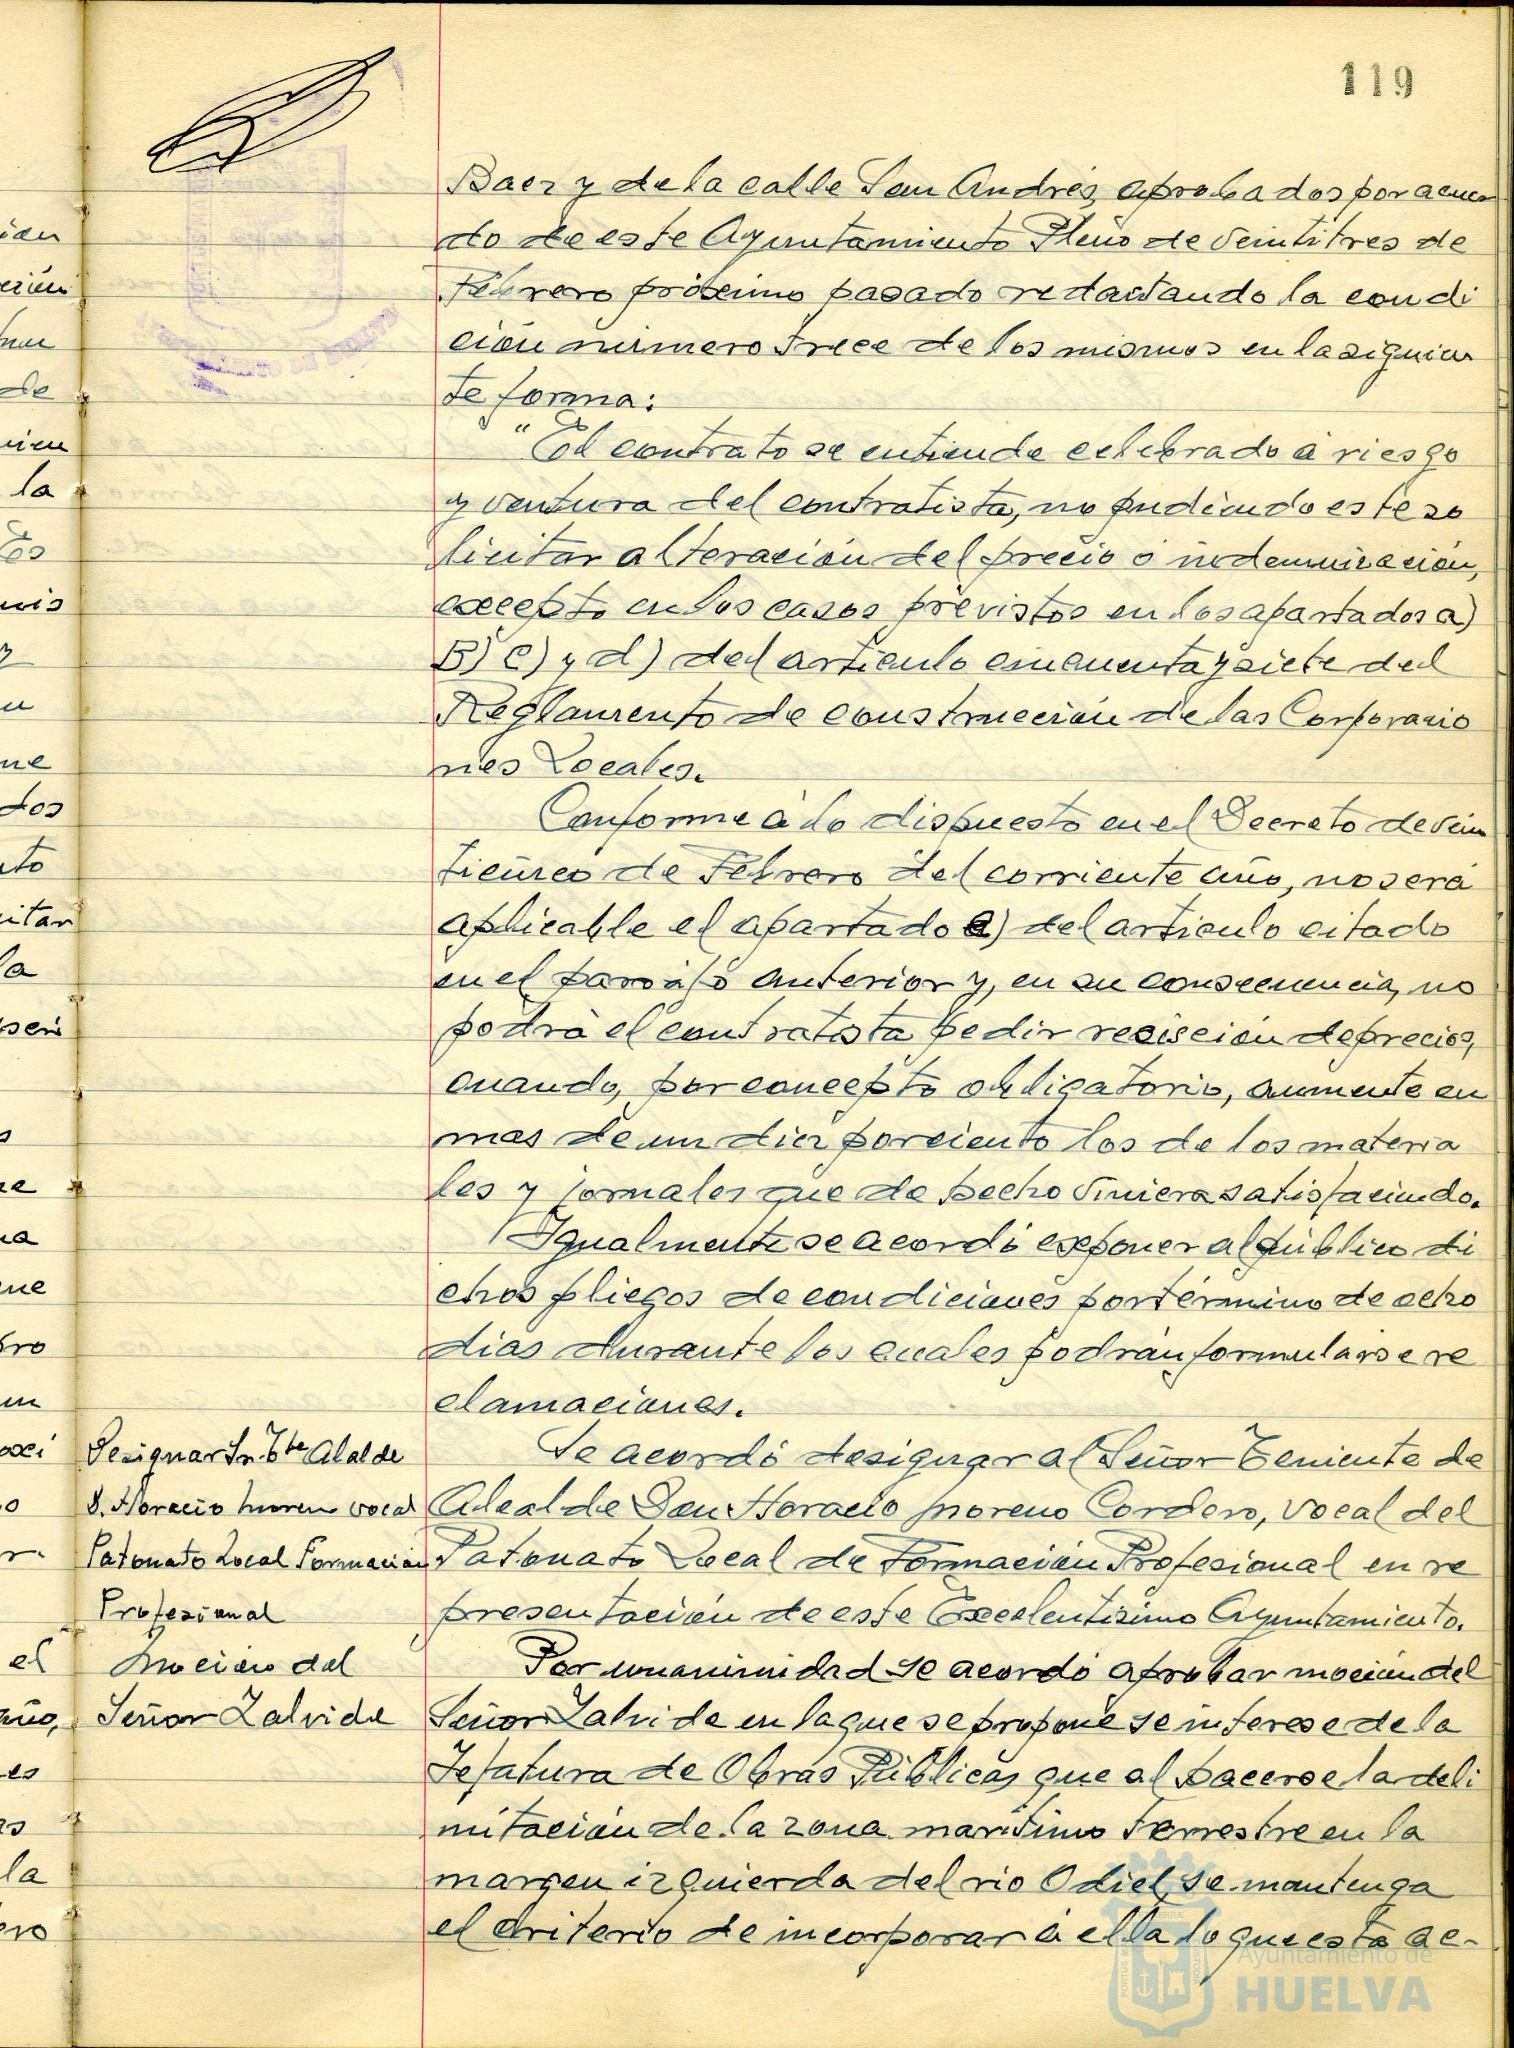 119
Baez y de la calle San Andrés, aprobados por acuer
do de este Ayuntamiento Pleno de veintitres de
Febrero próximo pasado redactando la condi
ción número trece de los mismos en la siguien
te forma:
"El contrato se entiende celebrado á riesgo
y ventura del contratista, no pudiendo este so
licitar alteración del precio ó indemnización,
excepto en los casos previstos en los apartados a)
B) c) y d) del articulo cincuenta y siete del
Reglamento de construcción de las Corporacio
nes Locales.
Conforme á lo dispuesto en el Decreto de vein
ticinco de Febrero del corriente año, no será
aplicable el apartado c) del articulo citado
en el parrafo anterior y, en su consecuencia, no
podrá el contratista pedir recisción de precios,
cuando, por concepto obligatorio, aumente en
mas de un diez por ciento los de los materia
les y jornales que de hecho viniera satisfaciendo.
Igualmente se acordó exponer al público di
chos pliegos de condiciones por término de ocho
dias durante los cuales podrán formularse re
clamaciones.
Designar Sr. Tte Alalde
D. Horacio Moreno vocal
Patonato Local Formación
Profesional
Se acordó designar al Señor Teniente de
Alcalde Don Horacio Moreno Cordero, vocal del
Patonato Local de Formación Profesional en re
presentación de este Excelentisimo Ayuntamiento.
Moción del
Señor Zalvide
Por unanimidad se acordó aprobar moción del
Señor Zalvide en la que se propone se interese de la
Jefatura de Obras Públicas que al hacerse la deli
mitación de la zona maritimo terrestre en la
margen izquierda del rio Odiel, se mantenga
el criterio de incorporar á ella lo que está ac-
Ayuntamiento de
HUELVA